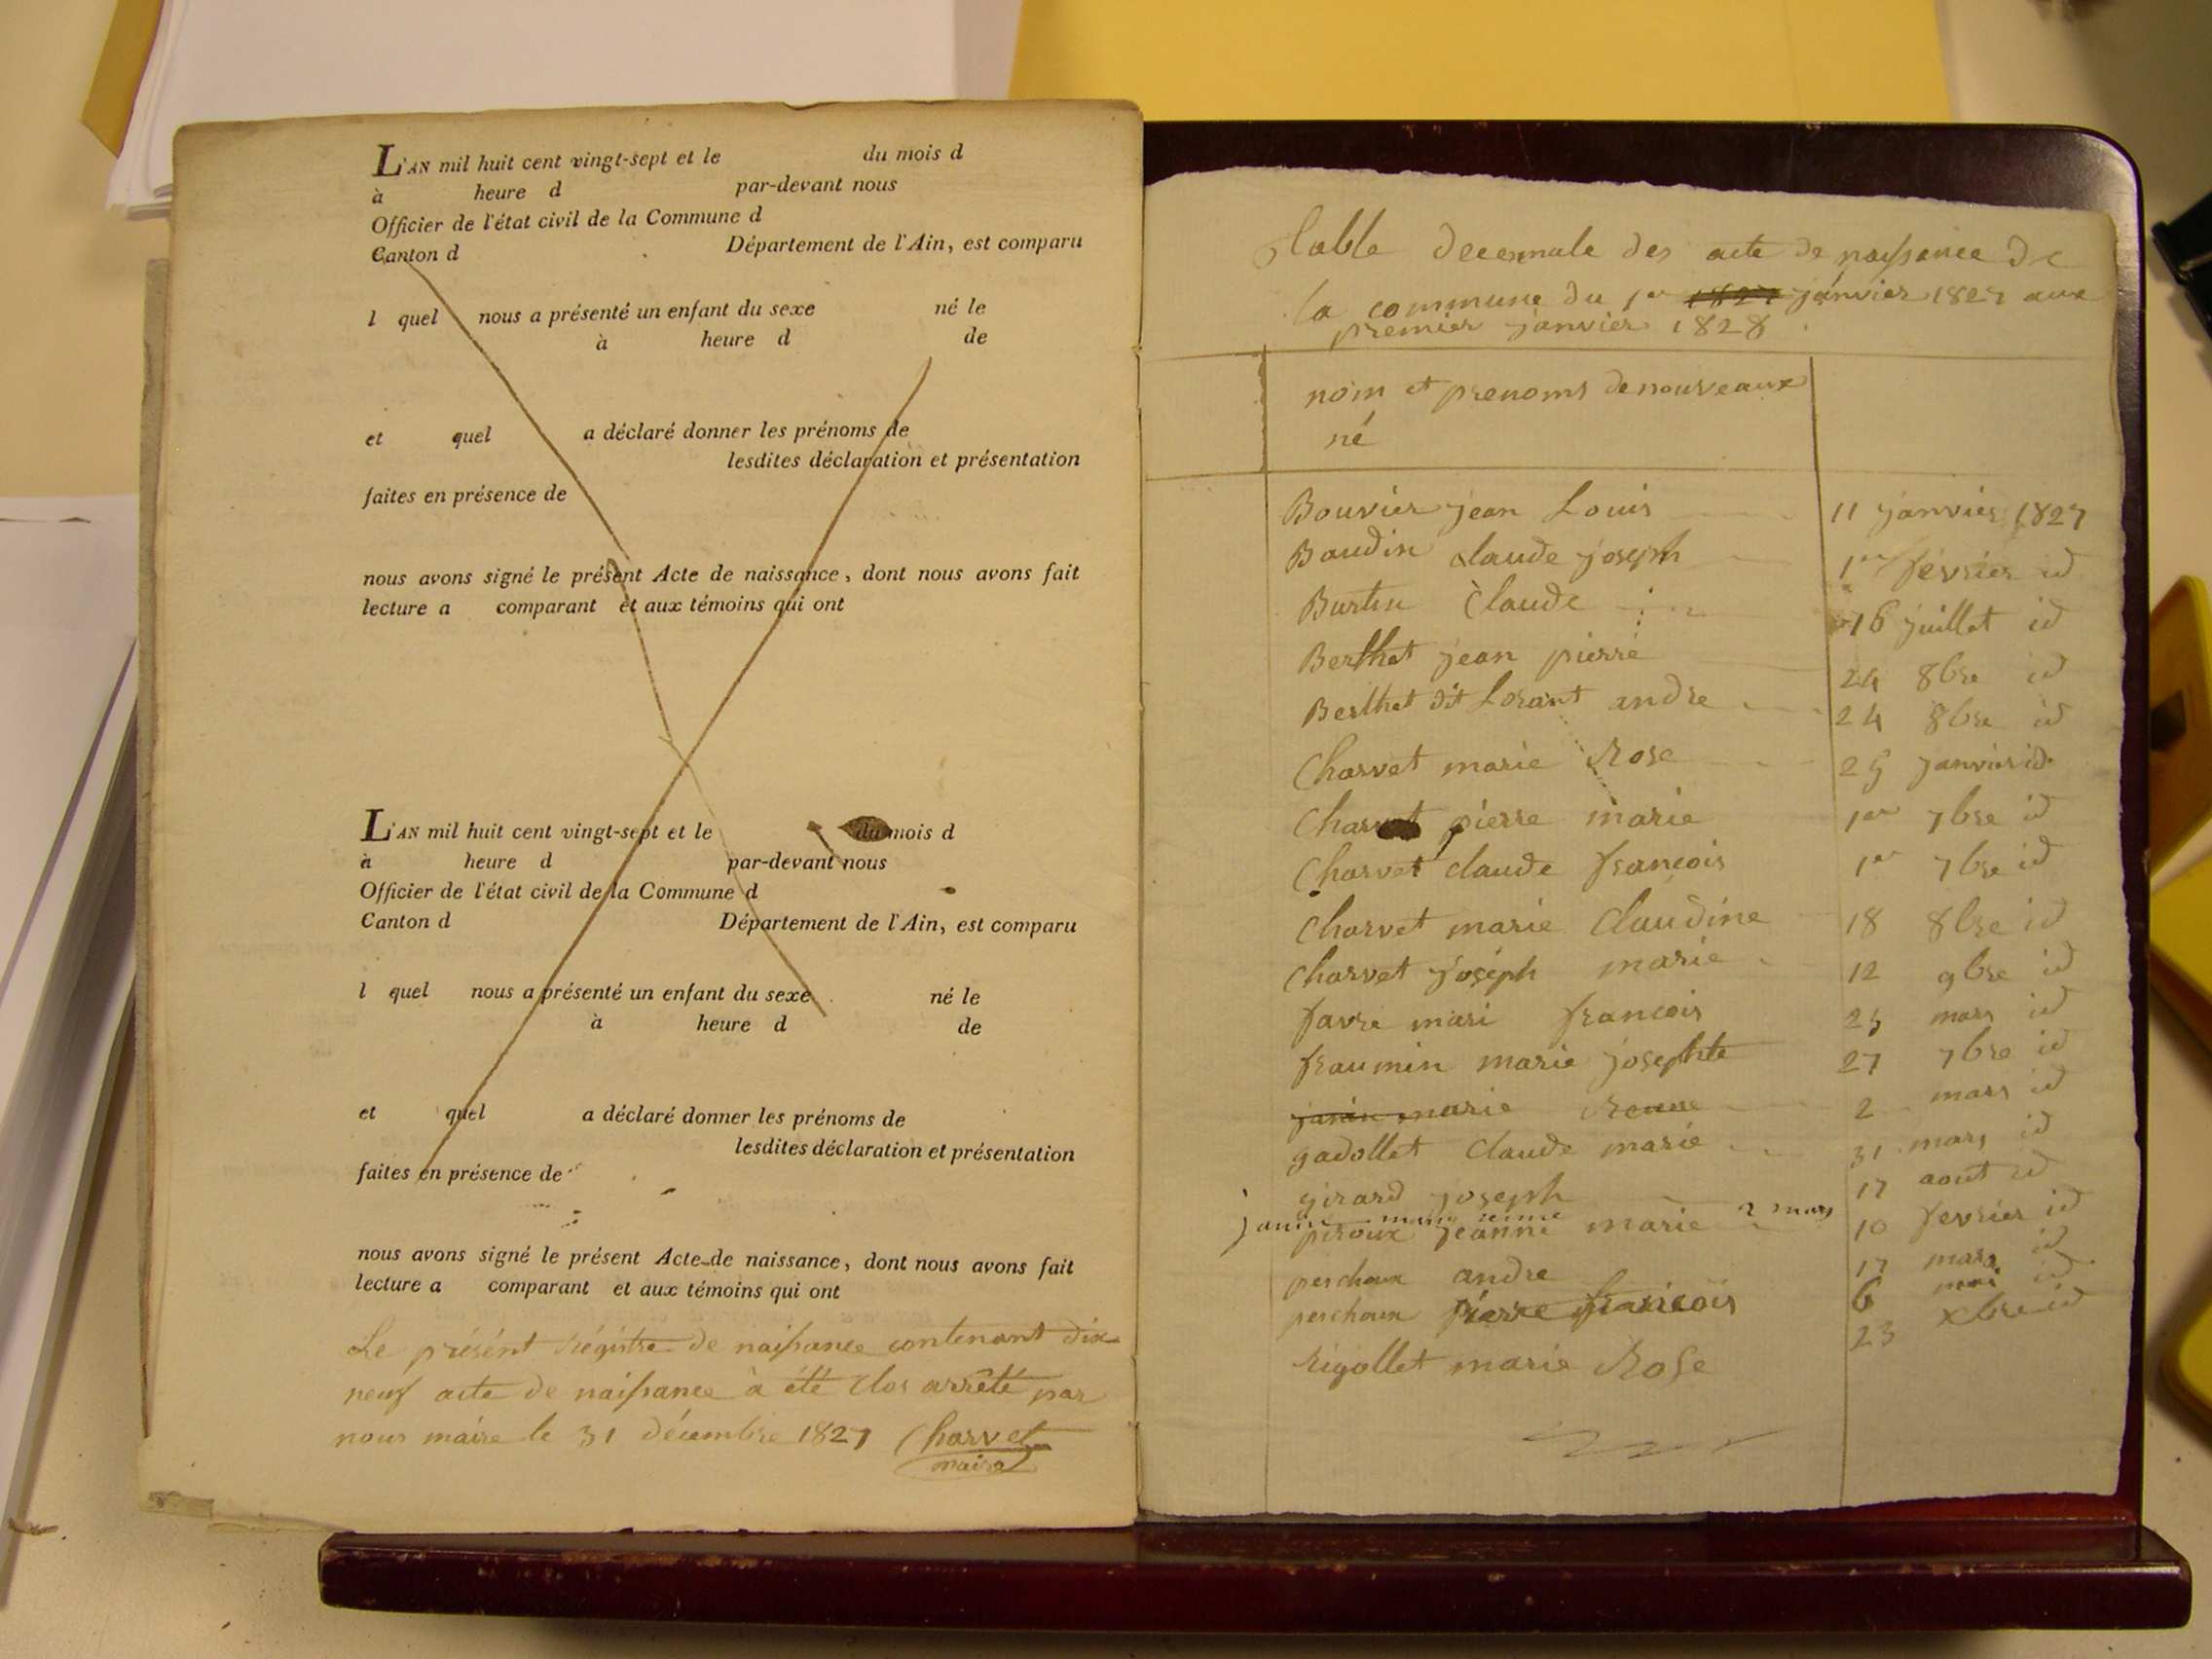 L'AN mil huit cent vingt-sept et le du mois d
à heure d par-devant nous
Officier de l'état civil de la Commune d
Canton d Département de l'Ain, est comparu
l quel nous a présenté un enfant du sexe né le
à heure d de
et quel a déclaré donner les prénoms de
lesdites déclaration et présentation
faites en présence de
nous avons signé le présent Acte de naissance, dont nous avons fait
lecture a comparant et aux témoins qui ont
L'AN mil huit cent vingt-sept et le du mois d
à heure d par-devant nous
Officier de l'état civil de la Commune d
Canton d Département de l'Ain, est comparu
l quel nous a présenté un enfant du sexe né le
à heure d de
et quel a déclaré donner les prénoms de
lesdites déclaration et présentation
faites en présence de
nous avons signé le présent Acte de naissance, dont nous avons fait
lecture a comparant et aux témoins qui ont
Le présent régistre de naissance contenant dix
neuf acte de naissance à été clos arrêté par
nous maire le 31 décembre 1827 Charvet
maire
Table decennale des acte de naissance de
la commune du 1er 1827 janvier 1827 aux
premier janvier 1828
nom et prenoms de nouveaux
né
Bouvier jean Louis 11 janvier 1827
Baudin Claude joseph 1er février id
Burtin Claude 16 juillet id
Berthet jean pierre 24 8bre id
Berthet dit Lorant andre 24 8bre id
Charvet marie Rose 25 janvier id
Charvet pierre marie 1er 7bre id
Charvet claude françois 1er 7bre id
Charvet marie Claudine 18 8bre id
Charvet joséph marie 12 9bre id
favre mari francois 25 mars id
fraumin marie josephte 27 7bre id
janin marie Reine 2 mars id
gadollet Claude marie 31 mars id
girard joseph 17 aout id
janin marie reine 2 mars
peroux jeanne marie 10 fevrier id
perchoux andre 17 mars id
perchoux pierre françois 6 mai id
rigollet marie Rose 23 xbre id